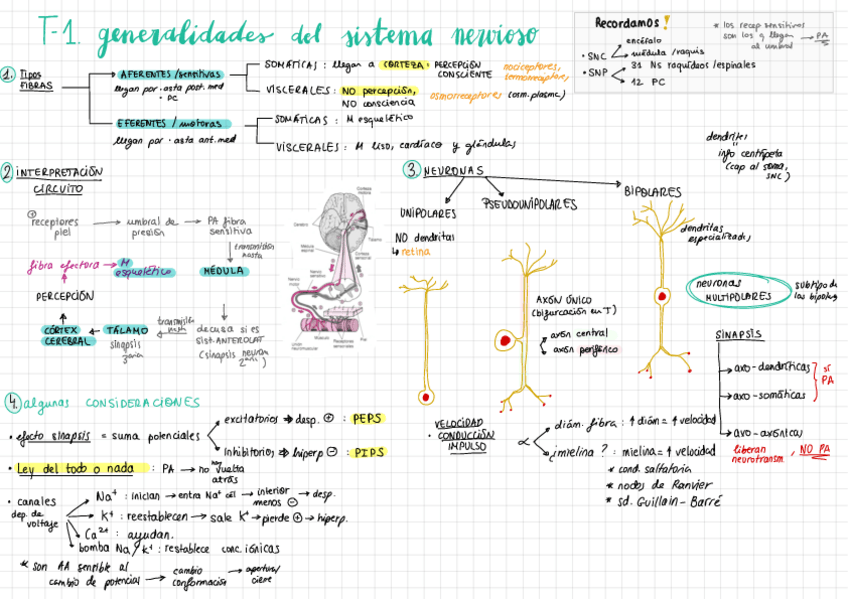 T-1. generalidades del sistema nervioso
Recordamos!
• SNC
encéfalo
médula/raquis
• SNP
31 Ns raquídeos/espinales
12 PC
* los recep sensitivos
son los q llegan → PA
al umbral
1. Tipos
FIBRAS
AFERENTES/sensitivas
llegan por · asta post. med
· PC
SOMÁTICAS: llegan a CORTEZA. PERCEPCIÓN
CONSCIENTE
nociceptores,
termorreceptores,
VISCERALES: NO percepción,
NO consciencia
osmorreceptores (osm. plasma)
EFERENTES/motoras
llegan por · asta ant. med
SOMÁTICAS: M esquelético
VISCERALES: M liso, cardíaco y glándulas
2 INTERPRETACIÓN
CIRCUITO
receptores
piel
→ umbral de
presión
→ PA fibra
sensitiva
transmisión
hasta
MÉDULA
decusa si es
sist. ANTEROLAT
(sinapsis neurona
2aria)
transmisión
hasta
TÁLAMO
sinapsis
3aria
CÓRTEX
CEREBRAL
PERCEPCIÓN
fibra efectora → M
esquelético
3. NEURONAS
UNIPOLARES
NO dendritas
↳ retina
PSEUDOUNIPOLARES
AXÓN ÚNICO
(bifurcación en T)
axón central
axón periférico
BIPOLARES
dendritas
especializadas
dendritas
"
info centrípeta
(cap al soma,
SNC)
neuronas
MULTIPOLARES
subtipo de
las bipolares
SINAPSIS
axo-dendríticas
axo-somáticas
sí
PA
axo-axónicas
liberan
neurotransm, NO PA
VELOCIDAD
· CONDUCCIÓN
IMPULSO
∝
diám. fibra: ↑ diám = ↑ velocidad
¿mielina?: mielina = ↑ velocidad
* cond. saltatoria
* nodos de Ranvier
* sd. Guillain-Barré
4. algunas CONSIDERACIONES
• efecto sinapsis = suma potenciales
excitatorios → desp. ⊕ : PEPS
inhibitorios → hiperp ⊖ : PIPS
• Ley del todo o nada : PA → no hay vuelta
atrás
• canales
dep. de
voltaje
Na⁺ : inician → entra Na⁺ cél → interior
menos ⊖ → desp.
K⁺ : reestablecen → sale K⁺ → pierde ⊕ → hiperp.
Ca²⁺ : ayudan.
bomba Na/K⁺ : restablece conc. iónicas
* son AA sensible al
cambio de potencial → cambio
conformación → apertura/
cierre